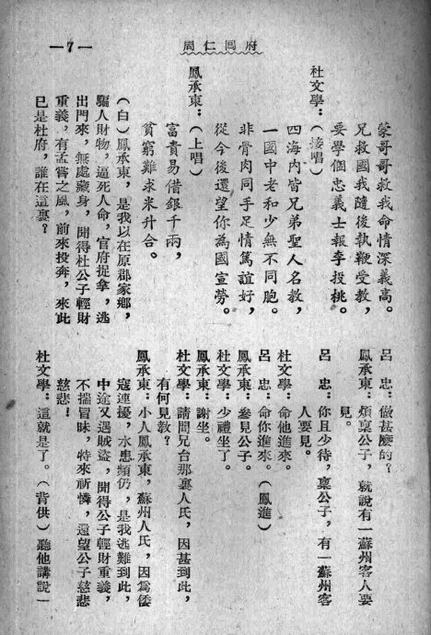 周仁囘府
—7—
蒙哥哥救我命情深義高。
兄救國我隨後執鞭受教，
要學個忠義士報李投桃。
杜文學：（接唱）
四海內皆兄弟聖人名教，
一國中老和少無不同胞。
非骨肉同手足情篤誼好，
從今後還望你為國宣勞。
鳳承東：（上唱）
富貴易借銀千兩，
貧窮難求米升合。
（白）鳳承東，是我以在原郡家鄉，
騙人財物，逼死人命，官府捉拿，逃
出門來，無處藏身，聞得杜公子輕財
重義，有孟嘗之風，前來投奔，來此
已是杜府，誰在這裏？
呂　忠：做甚麼的？
鳳承東：煩稟公子，就說有一蘇州客人要
見。
呂　忠：你且少待，稟公子，有一蘇州客
人要見。
杜文學：命他進來。
呂　忠：命你進來。（鳳進）
鳳承東：參見公子。
杜文學：少禮坐了。
鳳承東：謝坐。
杜文學：請問兄台那裏人氏，因甚到此，
有何見教？
鳳承東：小人鳳承東，蘇州人氏，因為倭
寇連擾，水患頻仍，是我逃難到此，
中途又遇賊盜，聞得公子輕財重義，
不揣冒昧，特來祈憐，還望公子慈悲
慈悲！
杜文學：這就是了。（背供）聽他講說一